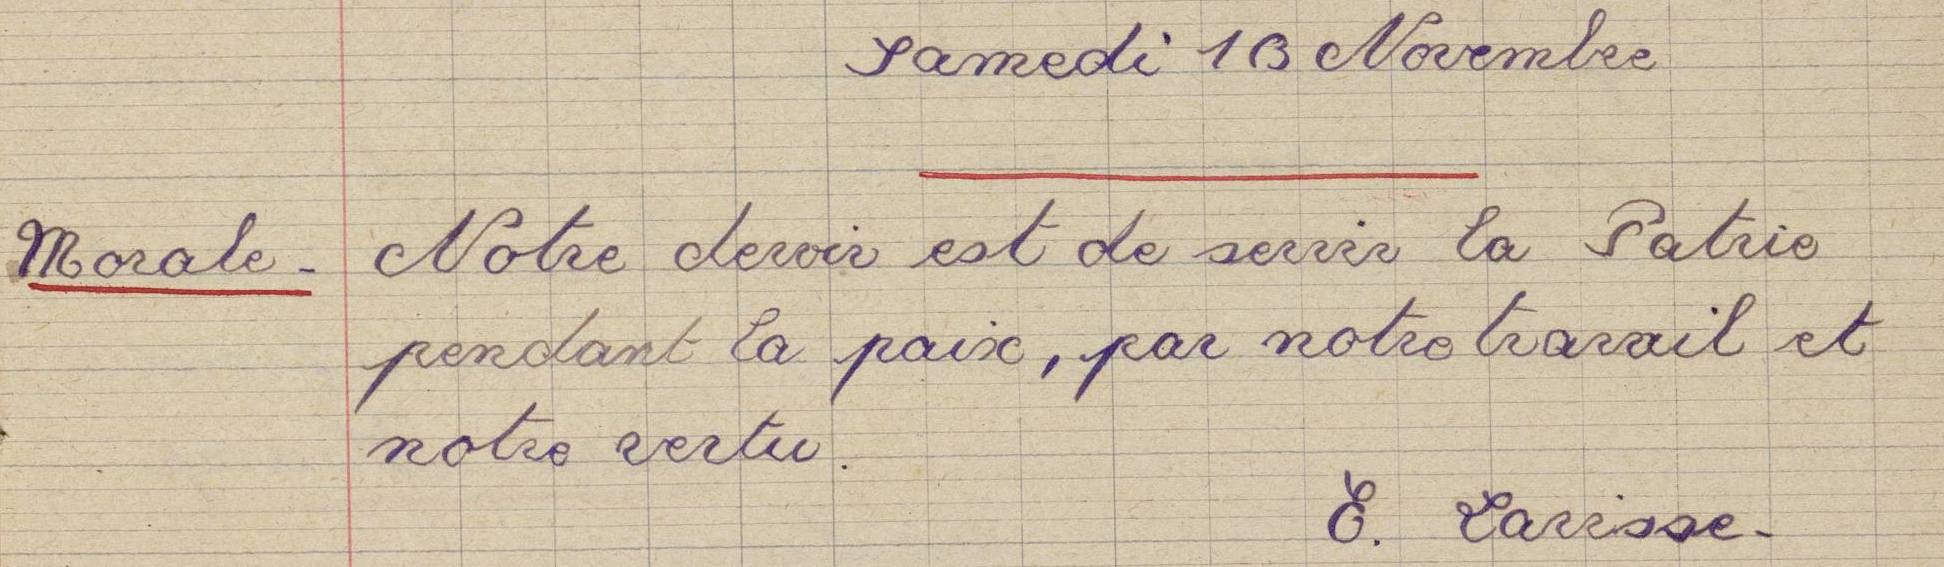 Samedi 13 Novembre
Morale - Notre devoir est de servir la Patrie
pendant la paix, par notre travail et
notre vertu.
E. Lavisse -